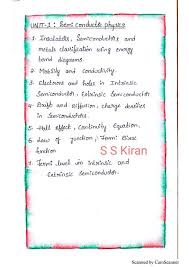 UNIT-1: Semi conductor physics
1. Insulators, Semiconductors and
metals classification using energy
band diagrams.
2. Mobility and conductivity.
3. Electrons and holes in Intrinsic
Semiconductor. Extrinsic Semiconductor
4. Drift and Diffusion, charge densities
in Semiconductors.
5. Hall effect, Continuity Equation.
6. Law of junction, Fermi Dirac
function
S S Kiran
7. Fermi level in intrinsic and
Extrinsic Semiconductor.
Scanned by CamScanner